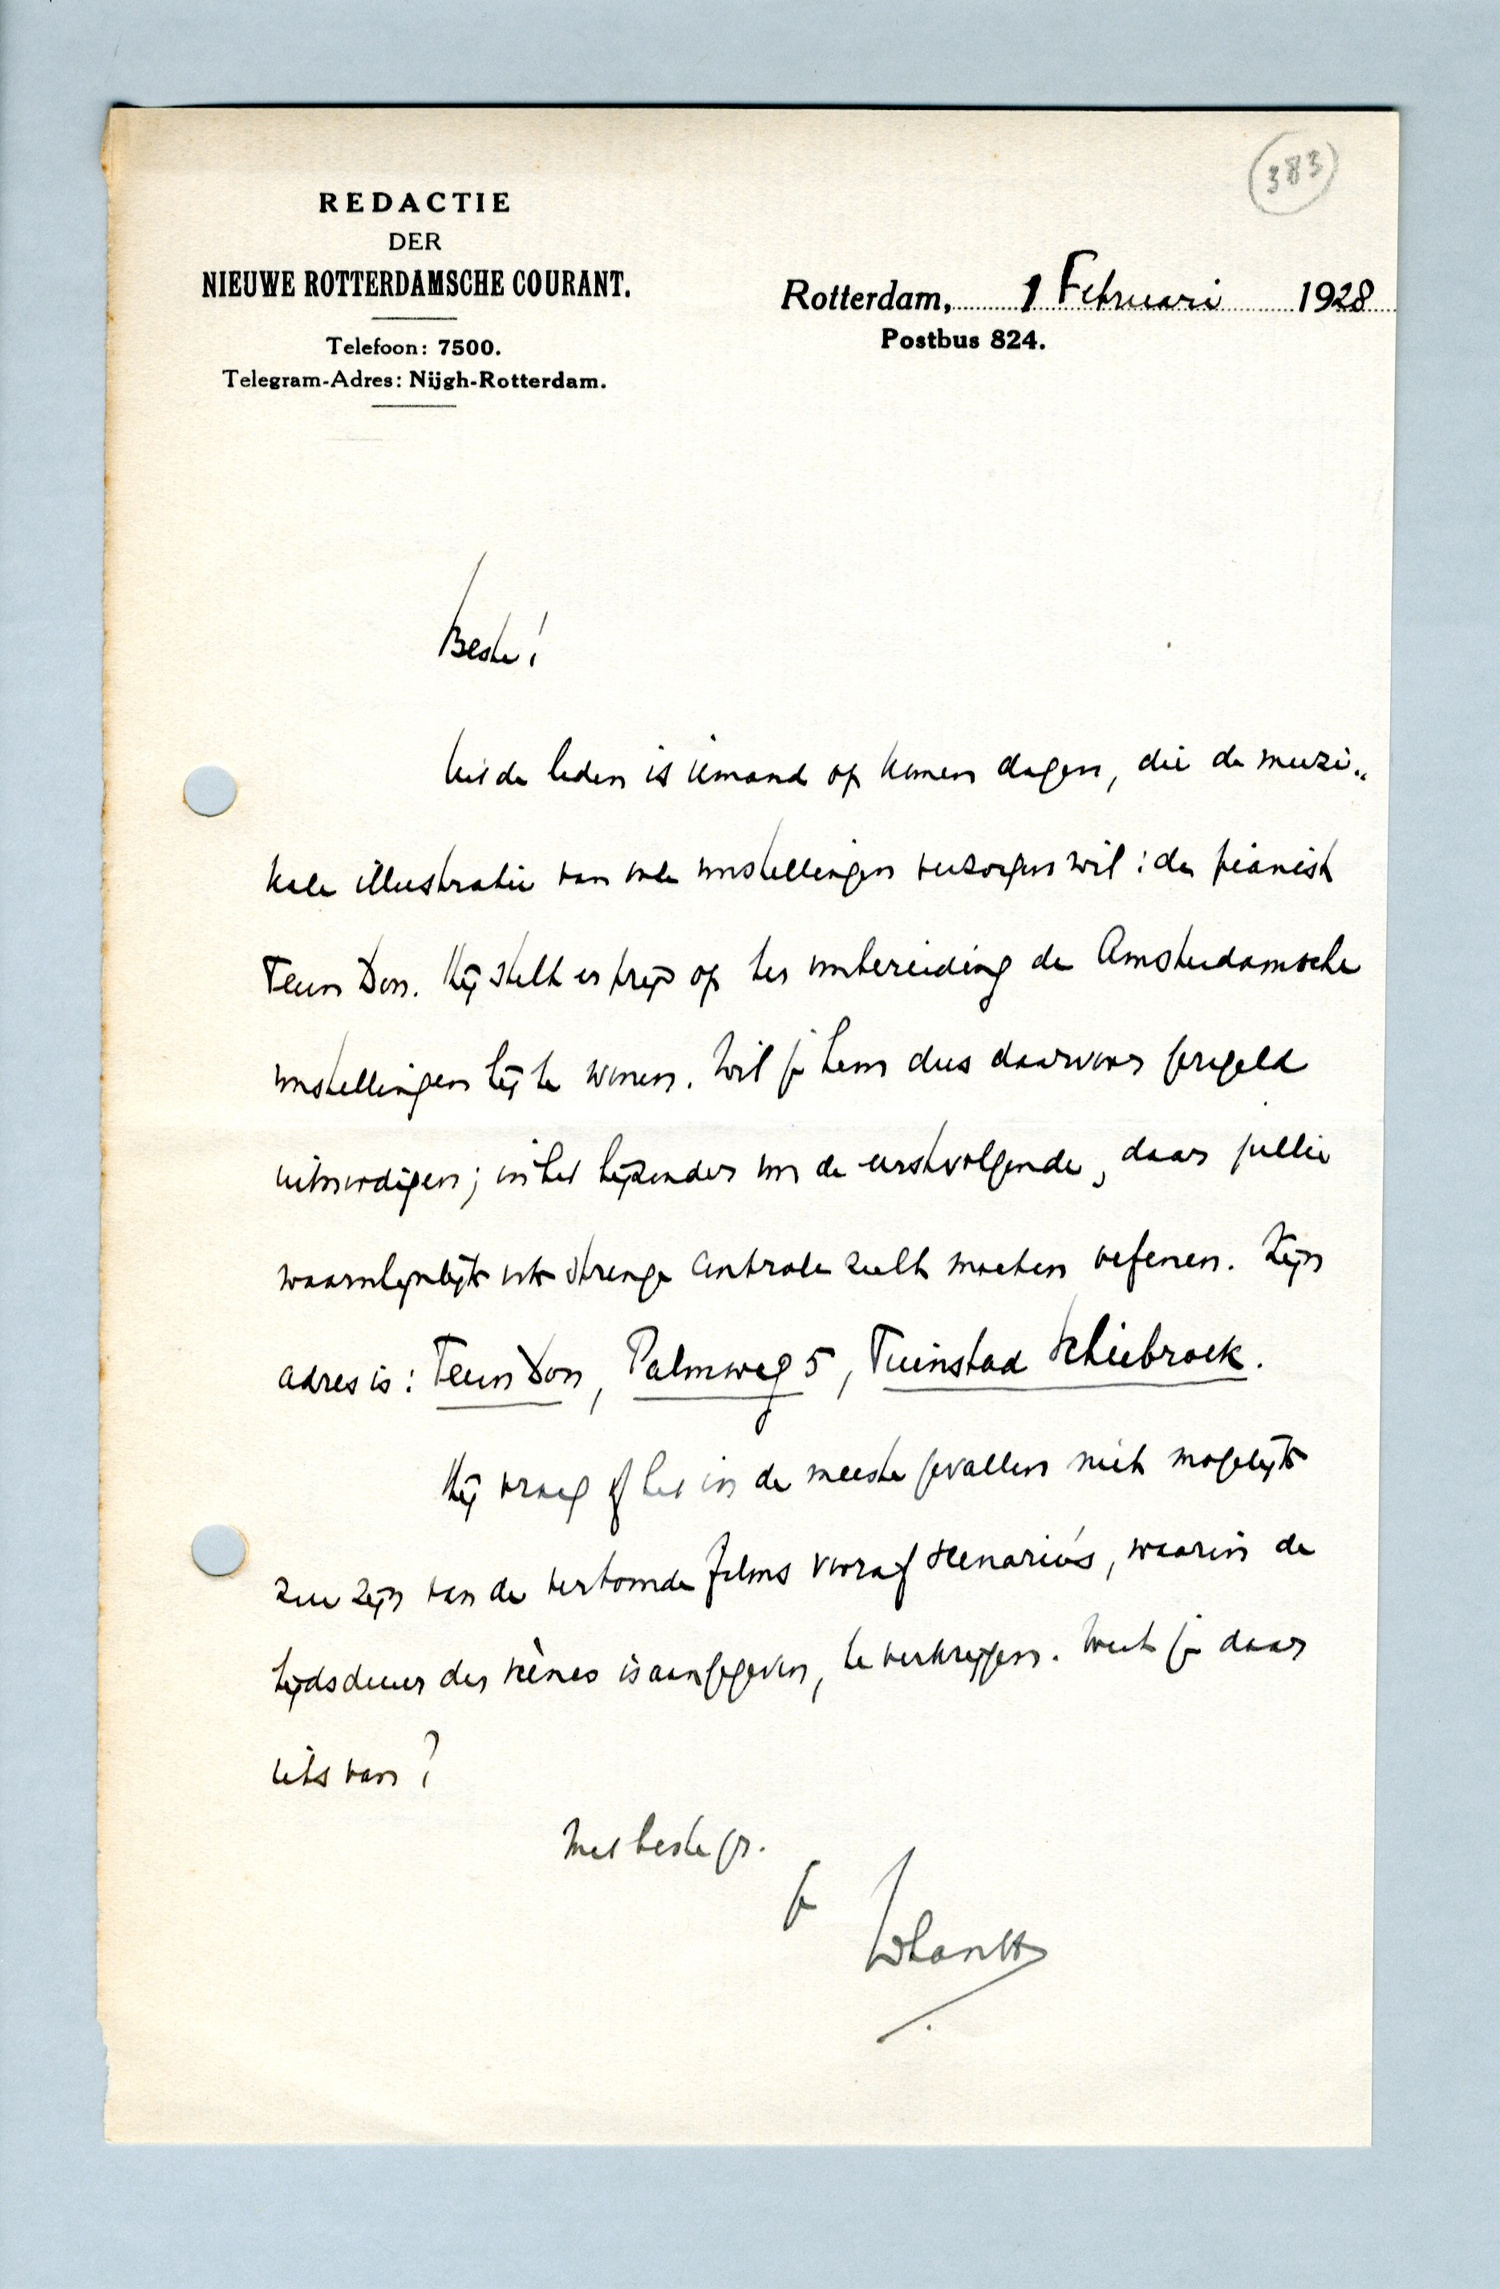 383
REDACTIE
DER
NIEUWE ROTTERDAMSCHE COURANT.
Telefoon: 7500.
Telegram-Adres: Nijgh-Rotterdam.
Rotterdam, 1 Februari 1928
Postbus 824.
Beste!
Uit de leden is iemand op komen dagen, die de muzi-
kale illustratie van onze voorstellingen verzorgen wil: de pianist
Teun Don. Hij stelt er prijs op ter voorbereiding de Amsterdamsche
voorstellingen bij te wonen. Wil je hem dus daarvoor geregeld
uitnoodigen; in het bijzonder voor de eerstvolgende, daar jullie
waarschijnlijk ook strenge controle zult moeten oefenen. Zijn
adres is: Teun Don, Palmweg 5, Tuinstad Schiebroek.
Hij vraag of het in de meeste gevallen niet mogelijk
zou zijn van de vertoonde films vooraf scenario's, waarin de
tijdsduur der scènes is aangegeven, te verkrijgen. Weet je daar
iets van?
Met beste gr.
je